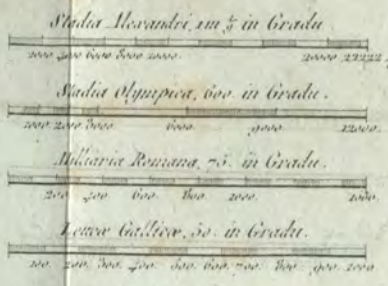 Stadia Alexandri, in Gradu.
2000 4000 6000 8000 10000 20000 22222
Stadia Olympica, 600. in Gradu.
1000 2000 3000 6000. 9000 12000.
Milliaria Romana, 75. in Gradu.
200 400 600. 800. 1000.
Leucæ Gallicæ, 50. in Gradu.
100. 200. 300. 400. 500. 600. 700. 800. 900. 1000